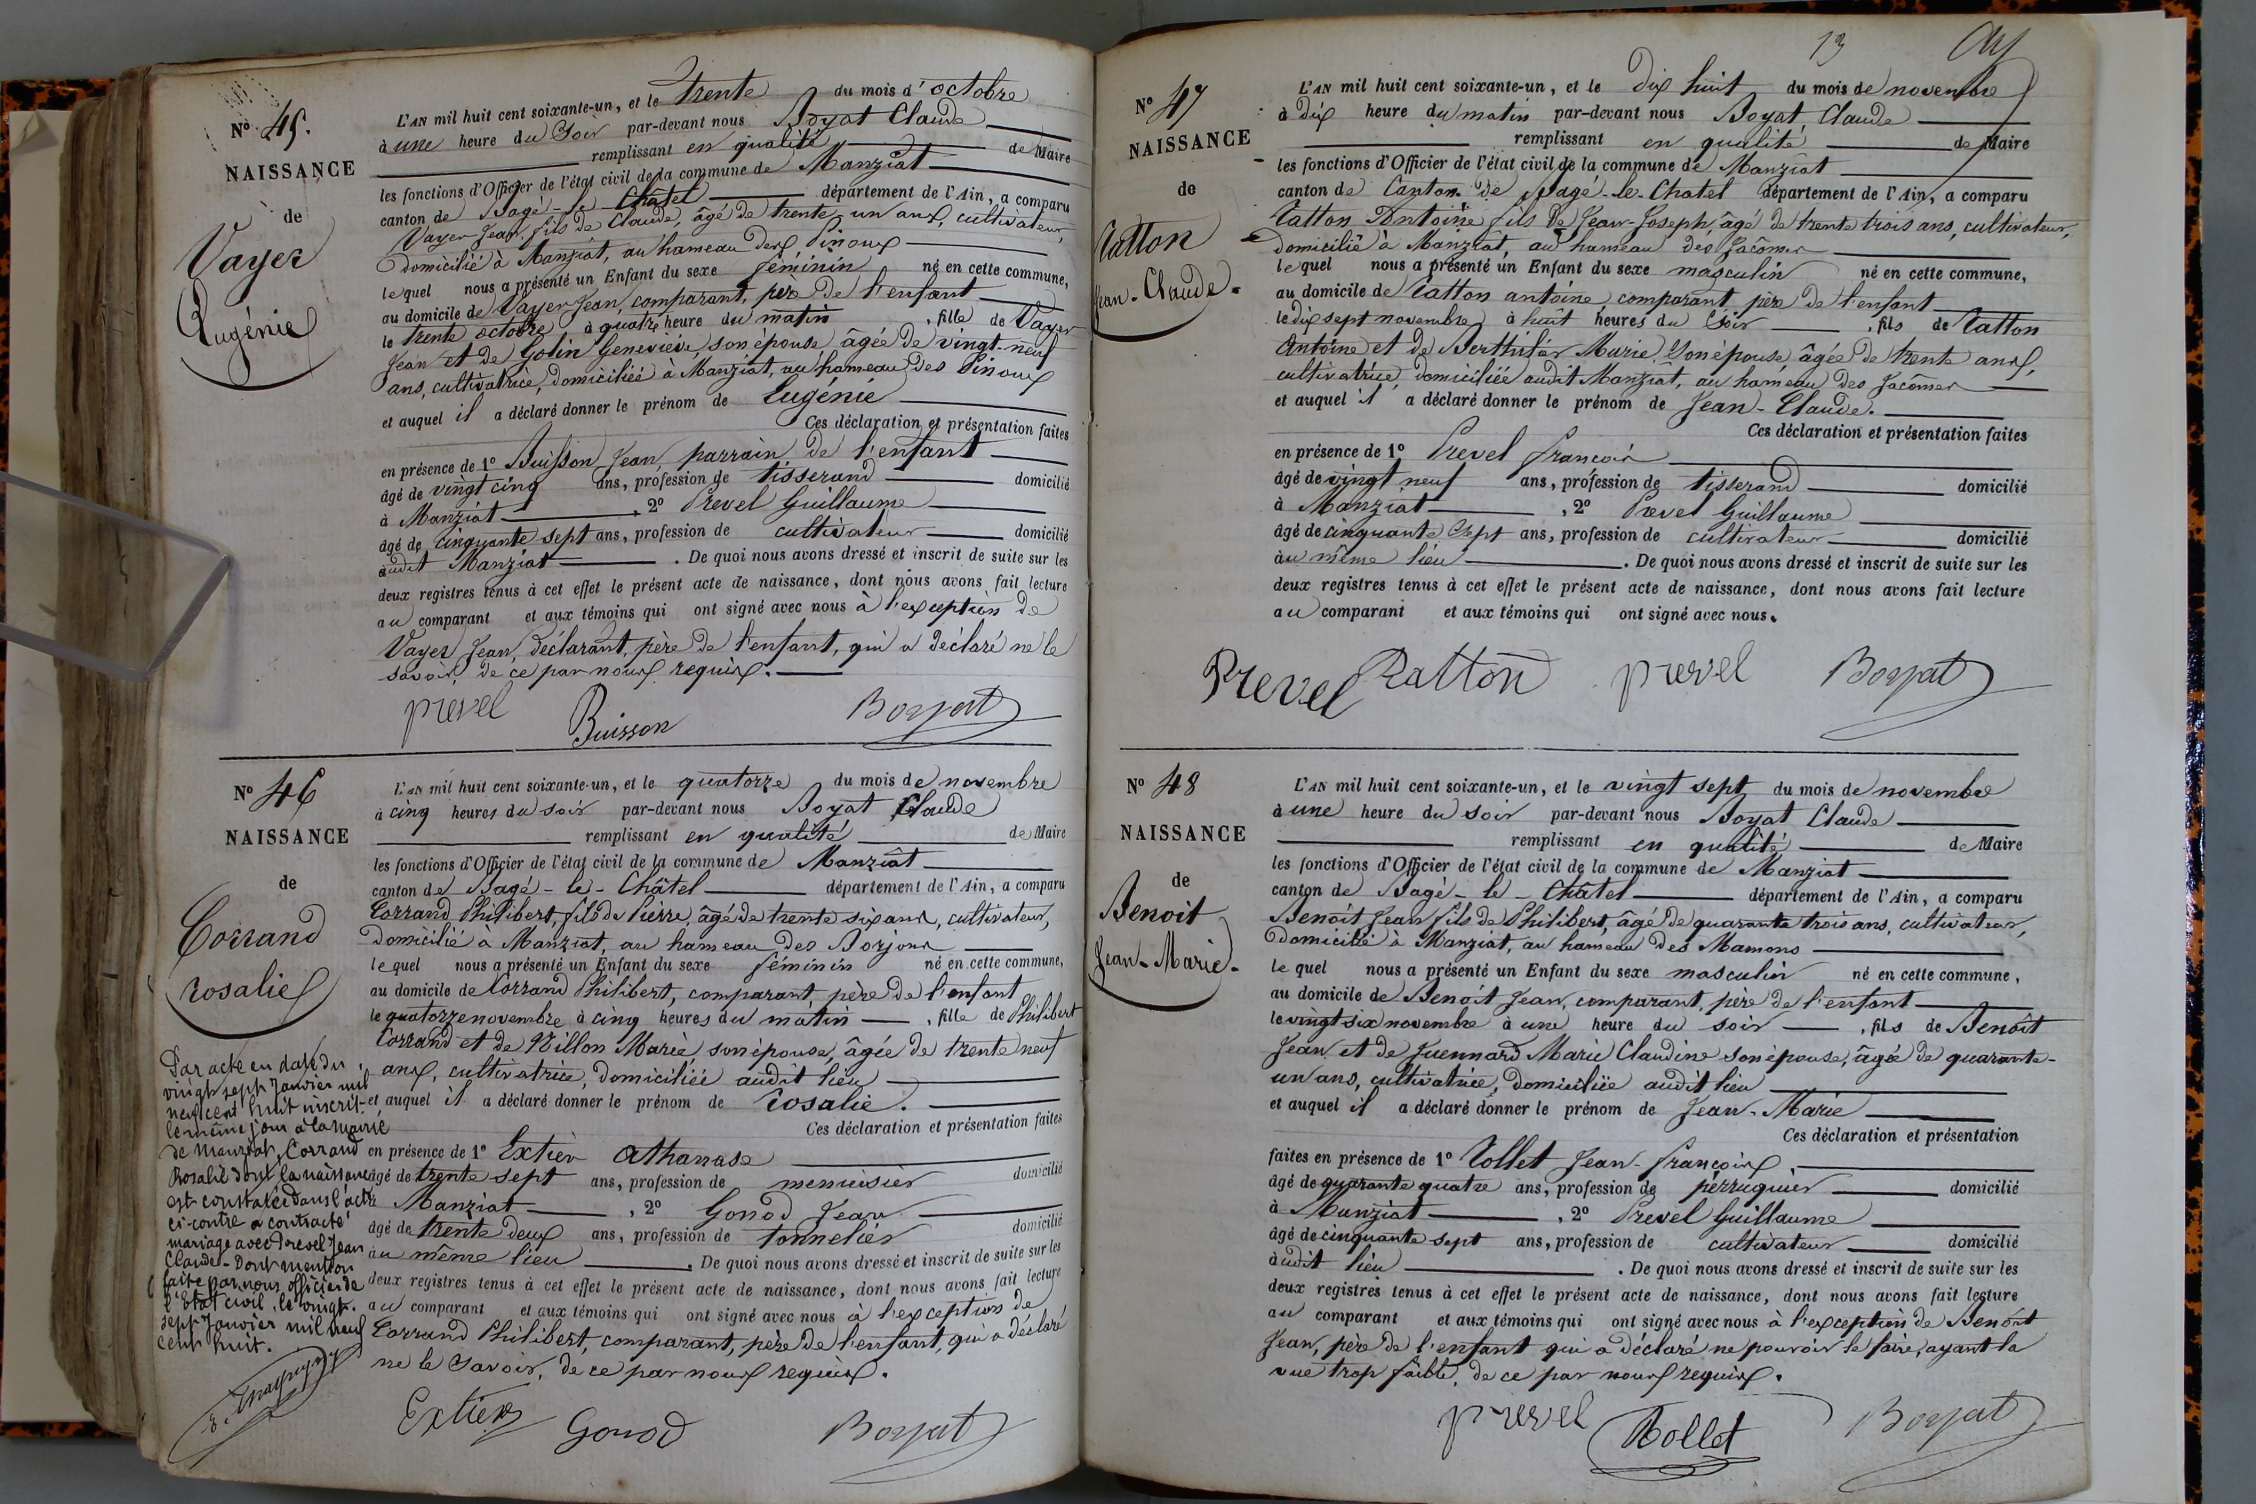 N° 45.
NAISSANCE
de
Vayer
Eugénie
L'AN mil huit cent soixante-un, et le trente du mois d'octobre
à une heure du soir par-devant nous Boyat Claude
remplissant en qualité de Maire
les fonctions d'Officier de l'état civil de la commune de Manziat
canton de Bagé-le-Châtel département de l'Ain, a comparu
Vayer Jean, fils de Claude, âgé de trente un ans, cultivateur,
domicilié à Manziat, au hameau des Pinoux
lequel nous a présenté un Enfant du sexe féminin né en cette commune,
au domicile de Vayer Jean, comparant, père de l'enfant
le trente octobre à quatre heure du matin, fille de Vayer
Jean et de Gotin Geneviève, son épouse, âgée de vingt-neuf
ans, cultivatrice, domiciliée à Manziat, au hameau des Pinoux
et auquel il a déclaré donner le prénom de Eugénie
Ces déclaration et présentation faites
en présence de 1° Buisson Jean, parrain de l'enfant
âgé de vingt cinq ans, profession de tisserand domicilié
à Manziat, 2° Prevel Guillaume
âgé de cinquante sept ans, profession de cultivateur domicilié
audit Manziat. De quoi nous avons dressé et inscrit de suite sur les
deux registres tenus à cet effet le présent acte de naissance, dont nous avons fait lecture
au comparant et aux témoins qui ont signé avec nous à l'exception de
Vayer Jean, déclarant, père de l'enfant, qui a déclaré ne le
savoir, de ce par nous requis.
prevel Buisson Boyat
N° 46
NAISSANCE
de
Corrand
rosalie
L'AN mil huit cent soixante-un, et le quatorze du mois de novembre
à cinq heures du soir par-devant nous Boyat Claude
remplissant en qualité de Maire
les fonctions d'Officier de l'état civil de la commune de Manziat
canton de Bagé-le-Châtel département de l'Ain, a comparu
Corrand Philibert, fils de Pierre, âgé de trente six ans, cultivateur,
domicilié à Manziat, au hameau des Borjons
lequel nous a présenté un Enfant du sexe féminin né en cette commune,
au domicile de Corrand Philibert, comparant, père de l'enfant
le quatorze novembre à cinq heures du matin, fille de Philibert
Corrand et de Villon Marie, son épouse, âgée de trente neuf
ans, cultivatrice, domiciliée audit lieu
et auquel il a déclaré donner le prénom de rosalie.
Ces déclaration et présentation faites
en présence de 1° Extier Athanase
âgé de trente sept ans, profession de menuisier domicilié
Manziat, 2° Gonod Jean
âgé de trente deux ans, profession de tonnelier domicilié
au même lieu. De quoi nous avons dressé et inscrit de suite sur les
deux registres tenus à cet effet le présent acte de naissance, dont nous avons fait lecture
au comparant et aux témoins qui ont signé avec nous à l'exception de
Corrand Philibert, comparant, père de l'enfant, qui a déclaré
ne le savoir, de ce par nous requis.
Extier Gonod Boyat
Par acte en date du
vingt sept Janvier mil
neuf cent huit inscrit
le même jour à la mairie
de Manziat, Corrand
Rosalie dont la naissance
est constatée dans l'acte
ci-contre a contracté
mariage avec Prevel Jean
Claude - Dont mention
faite par nous officier de
l'Etat civil, le vingt
sept Janvier mil neuf
cent huit.
13
N° 47
NAISSANCE
de
Catton
Jean-Claude
L'AN mil huit cent soixante-un, et le dix huit du mois de novembre
à dix heure du matin par-devant nous Boyat Claude
remplissant en qualité de Maire
les fonctions d'Officier de l'état civil de la commune de Manziat
canton de Canton de Bagé-le-Chatel département de l'Ain, a comparu
Catton Antoine fils de Jean-Joseph, âgé de trente trois ans, cultivateur,
domicilié à Manziat, au hameau des Jacômes
lequel nous a présenté un Enfant du sexe masculin né en cette commune,
au domicile de Catton antoine comparant père de l'enfant
le dix sept novembre à huit heures du soir, fils de Catton
Antoine et de Berthilier Marie, son épouse, âgée de trente ans,
cultivatrice, domiciliée audit Manziat, au hameau des Jacômes
et auquel il a déclaré donner le prénom de Jean-Claude.
Ces déclaration et présentation faites
en présence de 1° Prevel François
âgé de vingt neuf ans, profession de tisserand domicilié
à Manziat, 2° Prevel Guillaume
âgé de cinquante sept ans, profession de cultivateur domicilié
au même lieu. De quoi nous avons dressé et inscrit de suite sur les
deux registres tenus à cet effet le présent acte de naissance, dont nous avons fait lecture
au comparant et aux témoins qui ont signé avec nous.
Prevel Catton prevel Boyat
N° 48
NAISSANCE
de
Benoit
Jean-Marie
L'AN mil huit cent soixante-un, et le vingt sept du mois de novembre
à une heure du soir par-devant nous Boyat Claude
remplissant en qualité de Maire
les fonctions d'Officier de l'état civil de la commune de Manziat
canton de Bagé-le-Châtel département de l'Ain, a comparu
Benoit Jean fils de Philibert, âgé de quarante trois ans, cultivateur,
domicilié à Manziat, au hameau des Mamons
lequel nous a présenté un Enfant du sexe masculin né en cette commune,
au domicile de Benoit Jean, comparant, père de l'enfant
le vingt six novembre à une heure du soir, fils de Benoit
Jean, et de Guennard Marie Claudine son épouse, âgée de quarante-
un ans, cultivatrice, domiciliée audit lieu
et auquel il a déclaré donner le prénom de Jean-Marie
Ces déclaration et présentation
faites en présence de 1° Rollet Jean-François,
âgé de quarante quatre ans, profession de perruquier domicilié
à Manziat, 2° Prevel Guillaume
âgé de cinquante sept ans, profession de cultivateur domicilié
audit lieu. De quoi nous avons dressé et inscrit de suite sur les
deux registres tenus à cet effet le présent acte de naissance, dont nous avons fait lecture
au comparant et aux témoins qui ont signé avec nous à l'exception de Benoit
Jean, père de l'enfant qui a déclaré ne pouvoir le faire, ayant la
vue trop faible, de ce par nous requis.
prevel Rollet Boyat